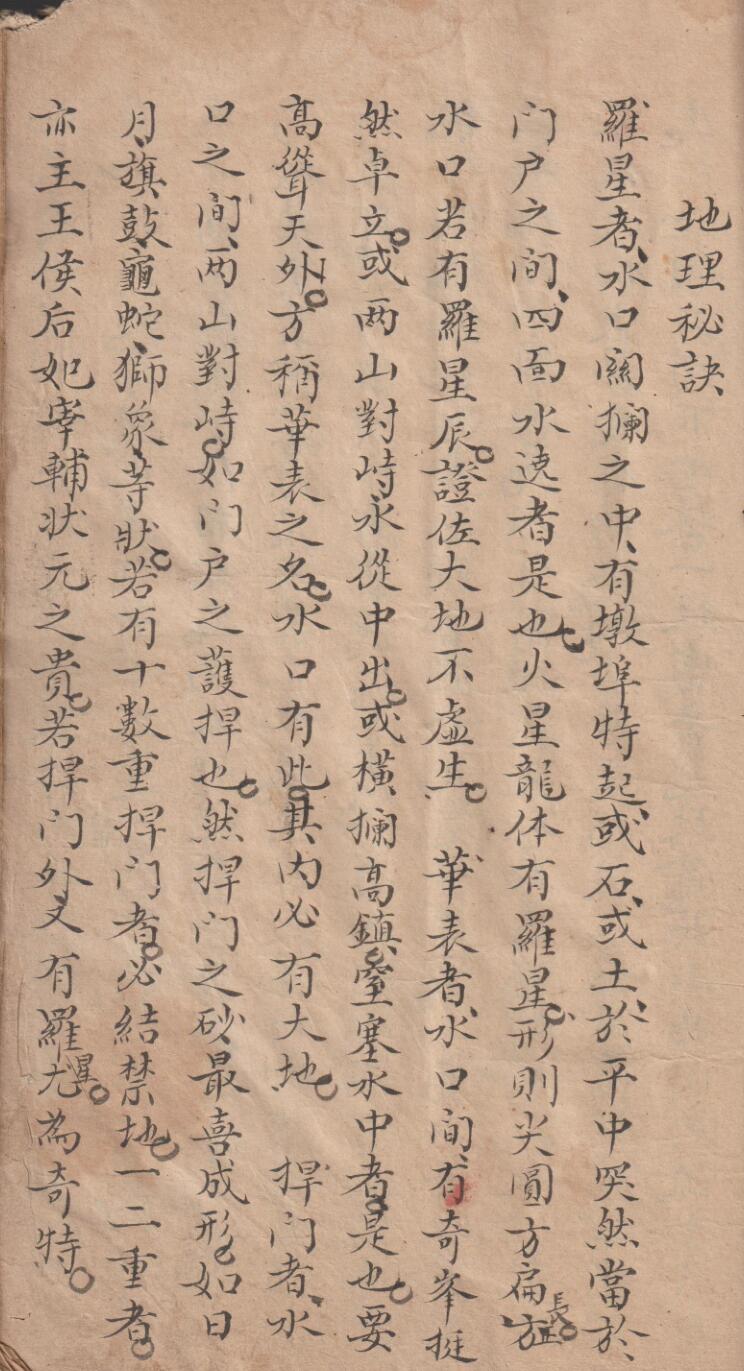 地理秘訣
羅星者、水口關攔之中、有墩埠特起、或石、或土、於平中突然當於
门户之间、四面水遶者是也。火星龍体有羅星。形則尖圓方扁長。
水口若有羅星辰。證佐大地不虛生。華表者、水口间、有奇峯挺
然卓立。或两山對峙、水從中出。或橫攔高鎮、窒塞水中者。是也。要
高聳天外。方稱華表之名。水口有此。其内必有大地。捍门者、水
口之间、两山對峙。如门户之護捍也。然捍门之砂、最喜成形。如日
月、旗鼓、龜蛇、獅象、等狀。若有十數重捍门者。必結禁地。一二重者。
亦主王侯、后妃、宰輔、状元之貴。若捍门外又有羅星。尤為奇特。